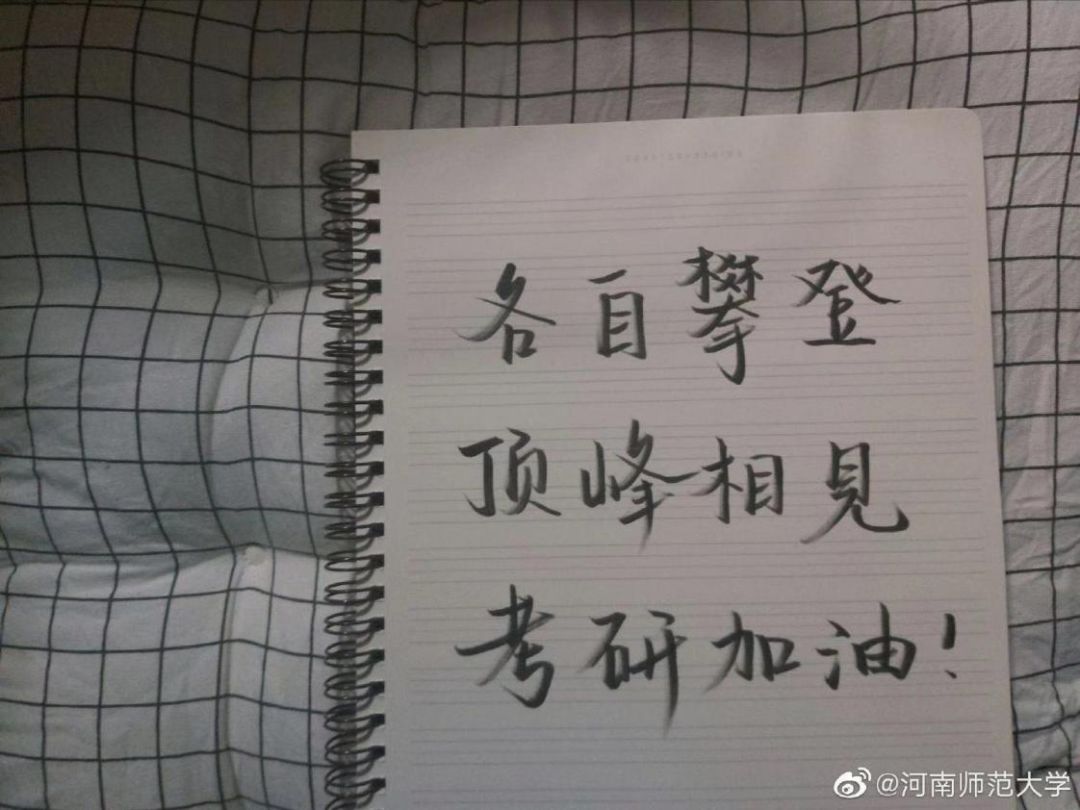 各自攀登
顶峰相见
考研加油!
@河南师范大学